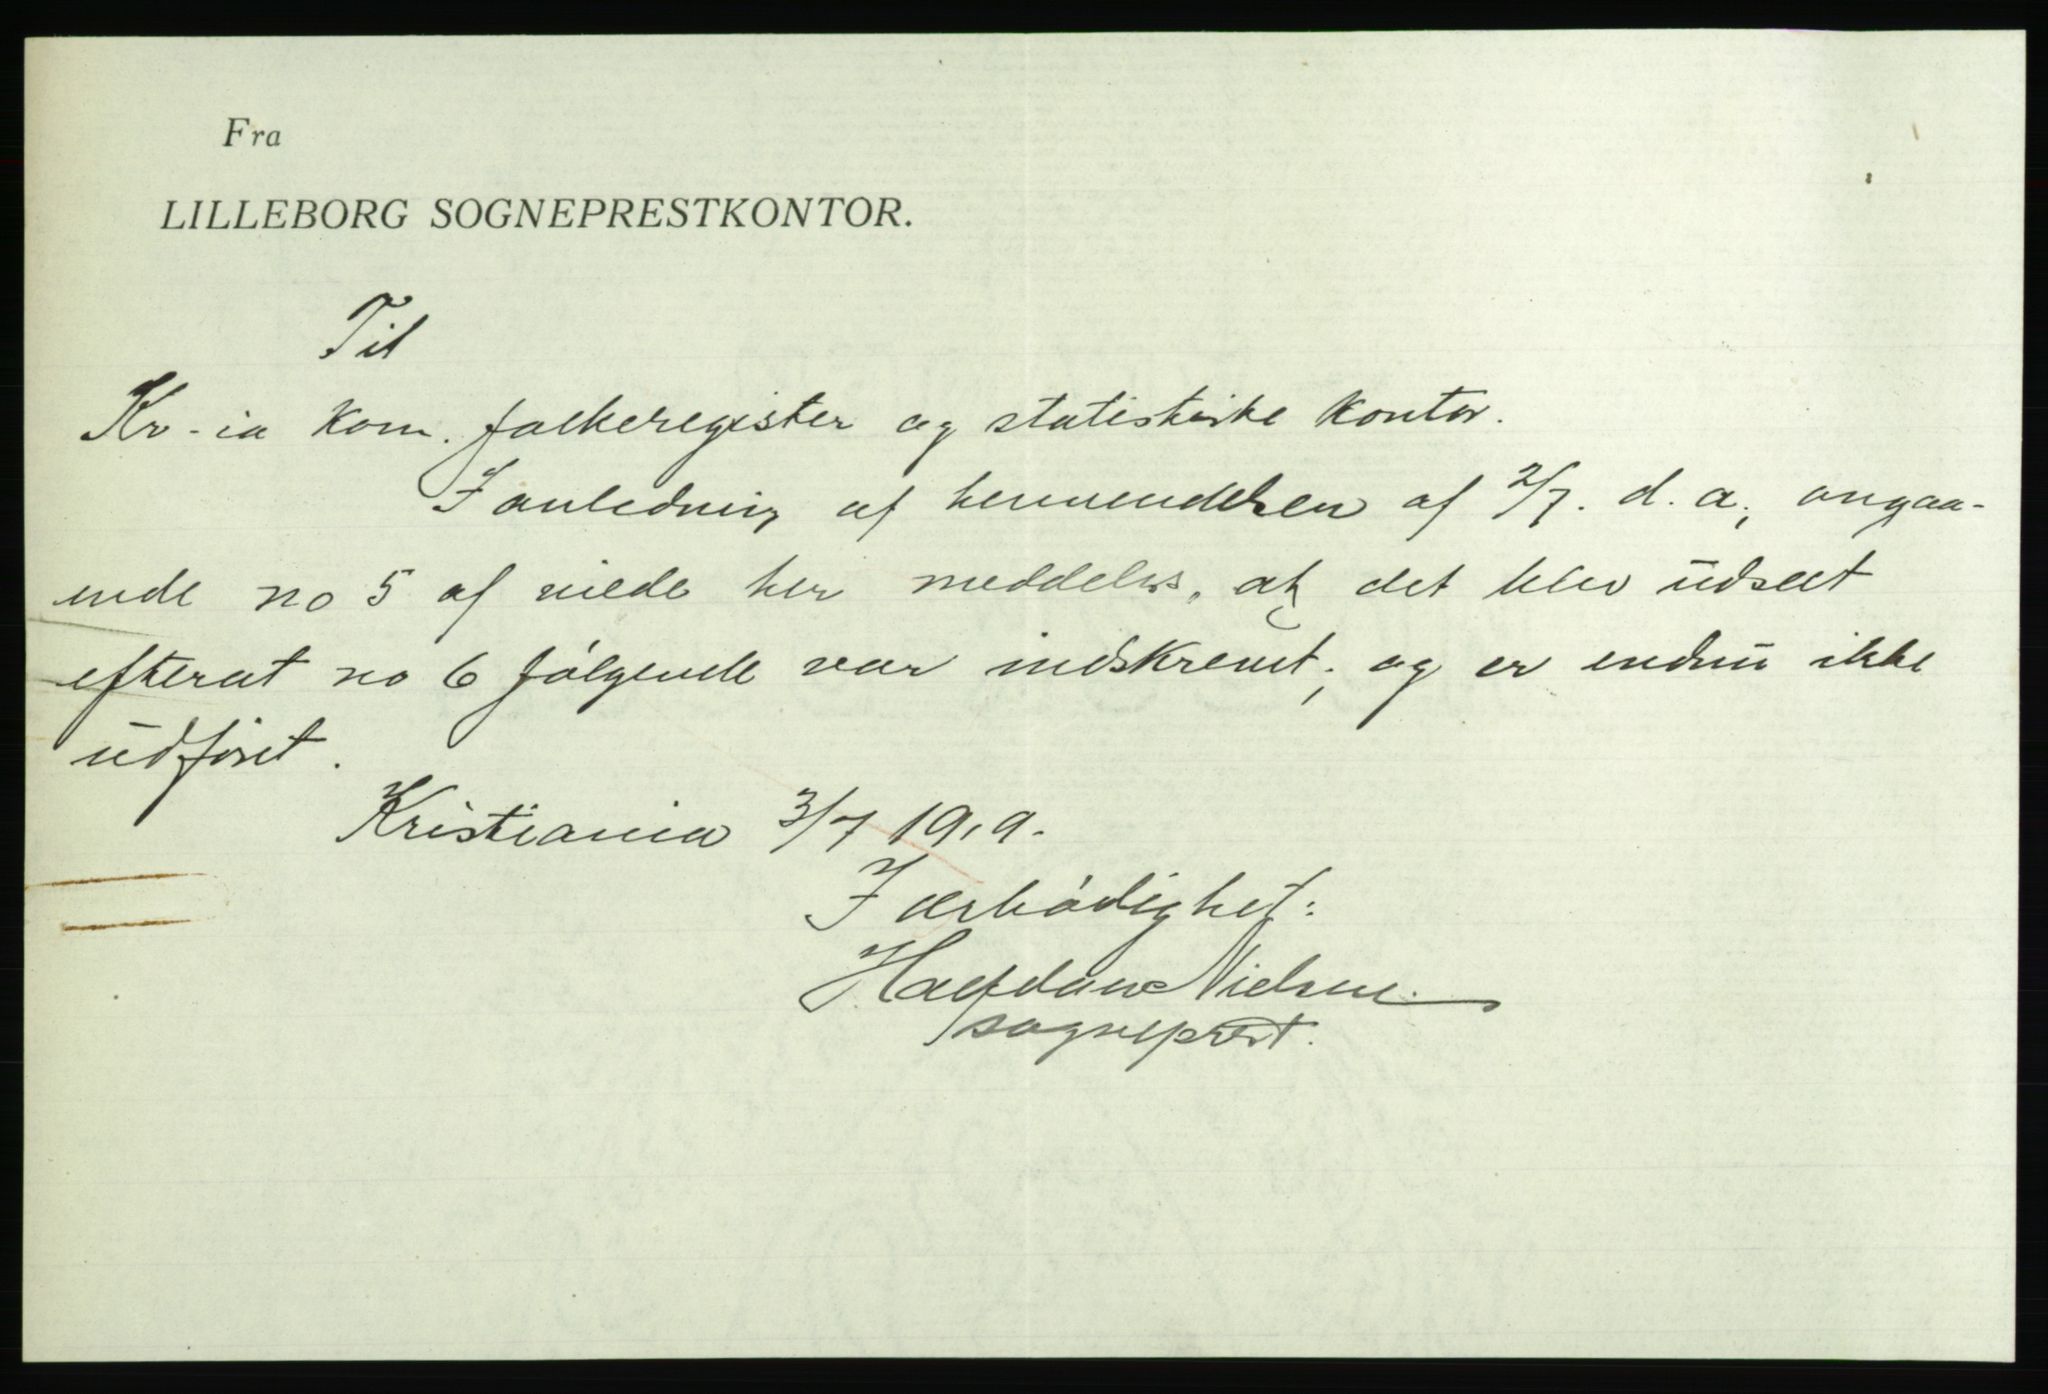 Fra
LILLEBORG SOGNEPRESTKONTOR.
Til
Kr-ia kom. folkeregister og statistiske kontor.
I anledning af henvendelsen af 2/7. d. a., angaa-
ende no 5 af viede her meddeles, at det blev udsat
efterat no 6 følgende var indskrevet, og er endnu ikke
udføret.
Kristiania 3/7 1919.
I ærbødighet:
Halfdan Nielsen.
sogneprest.